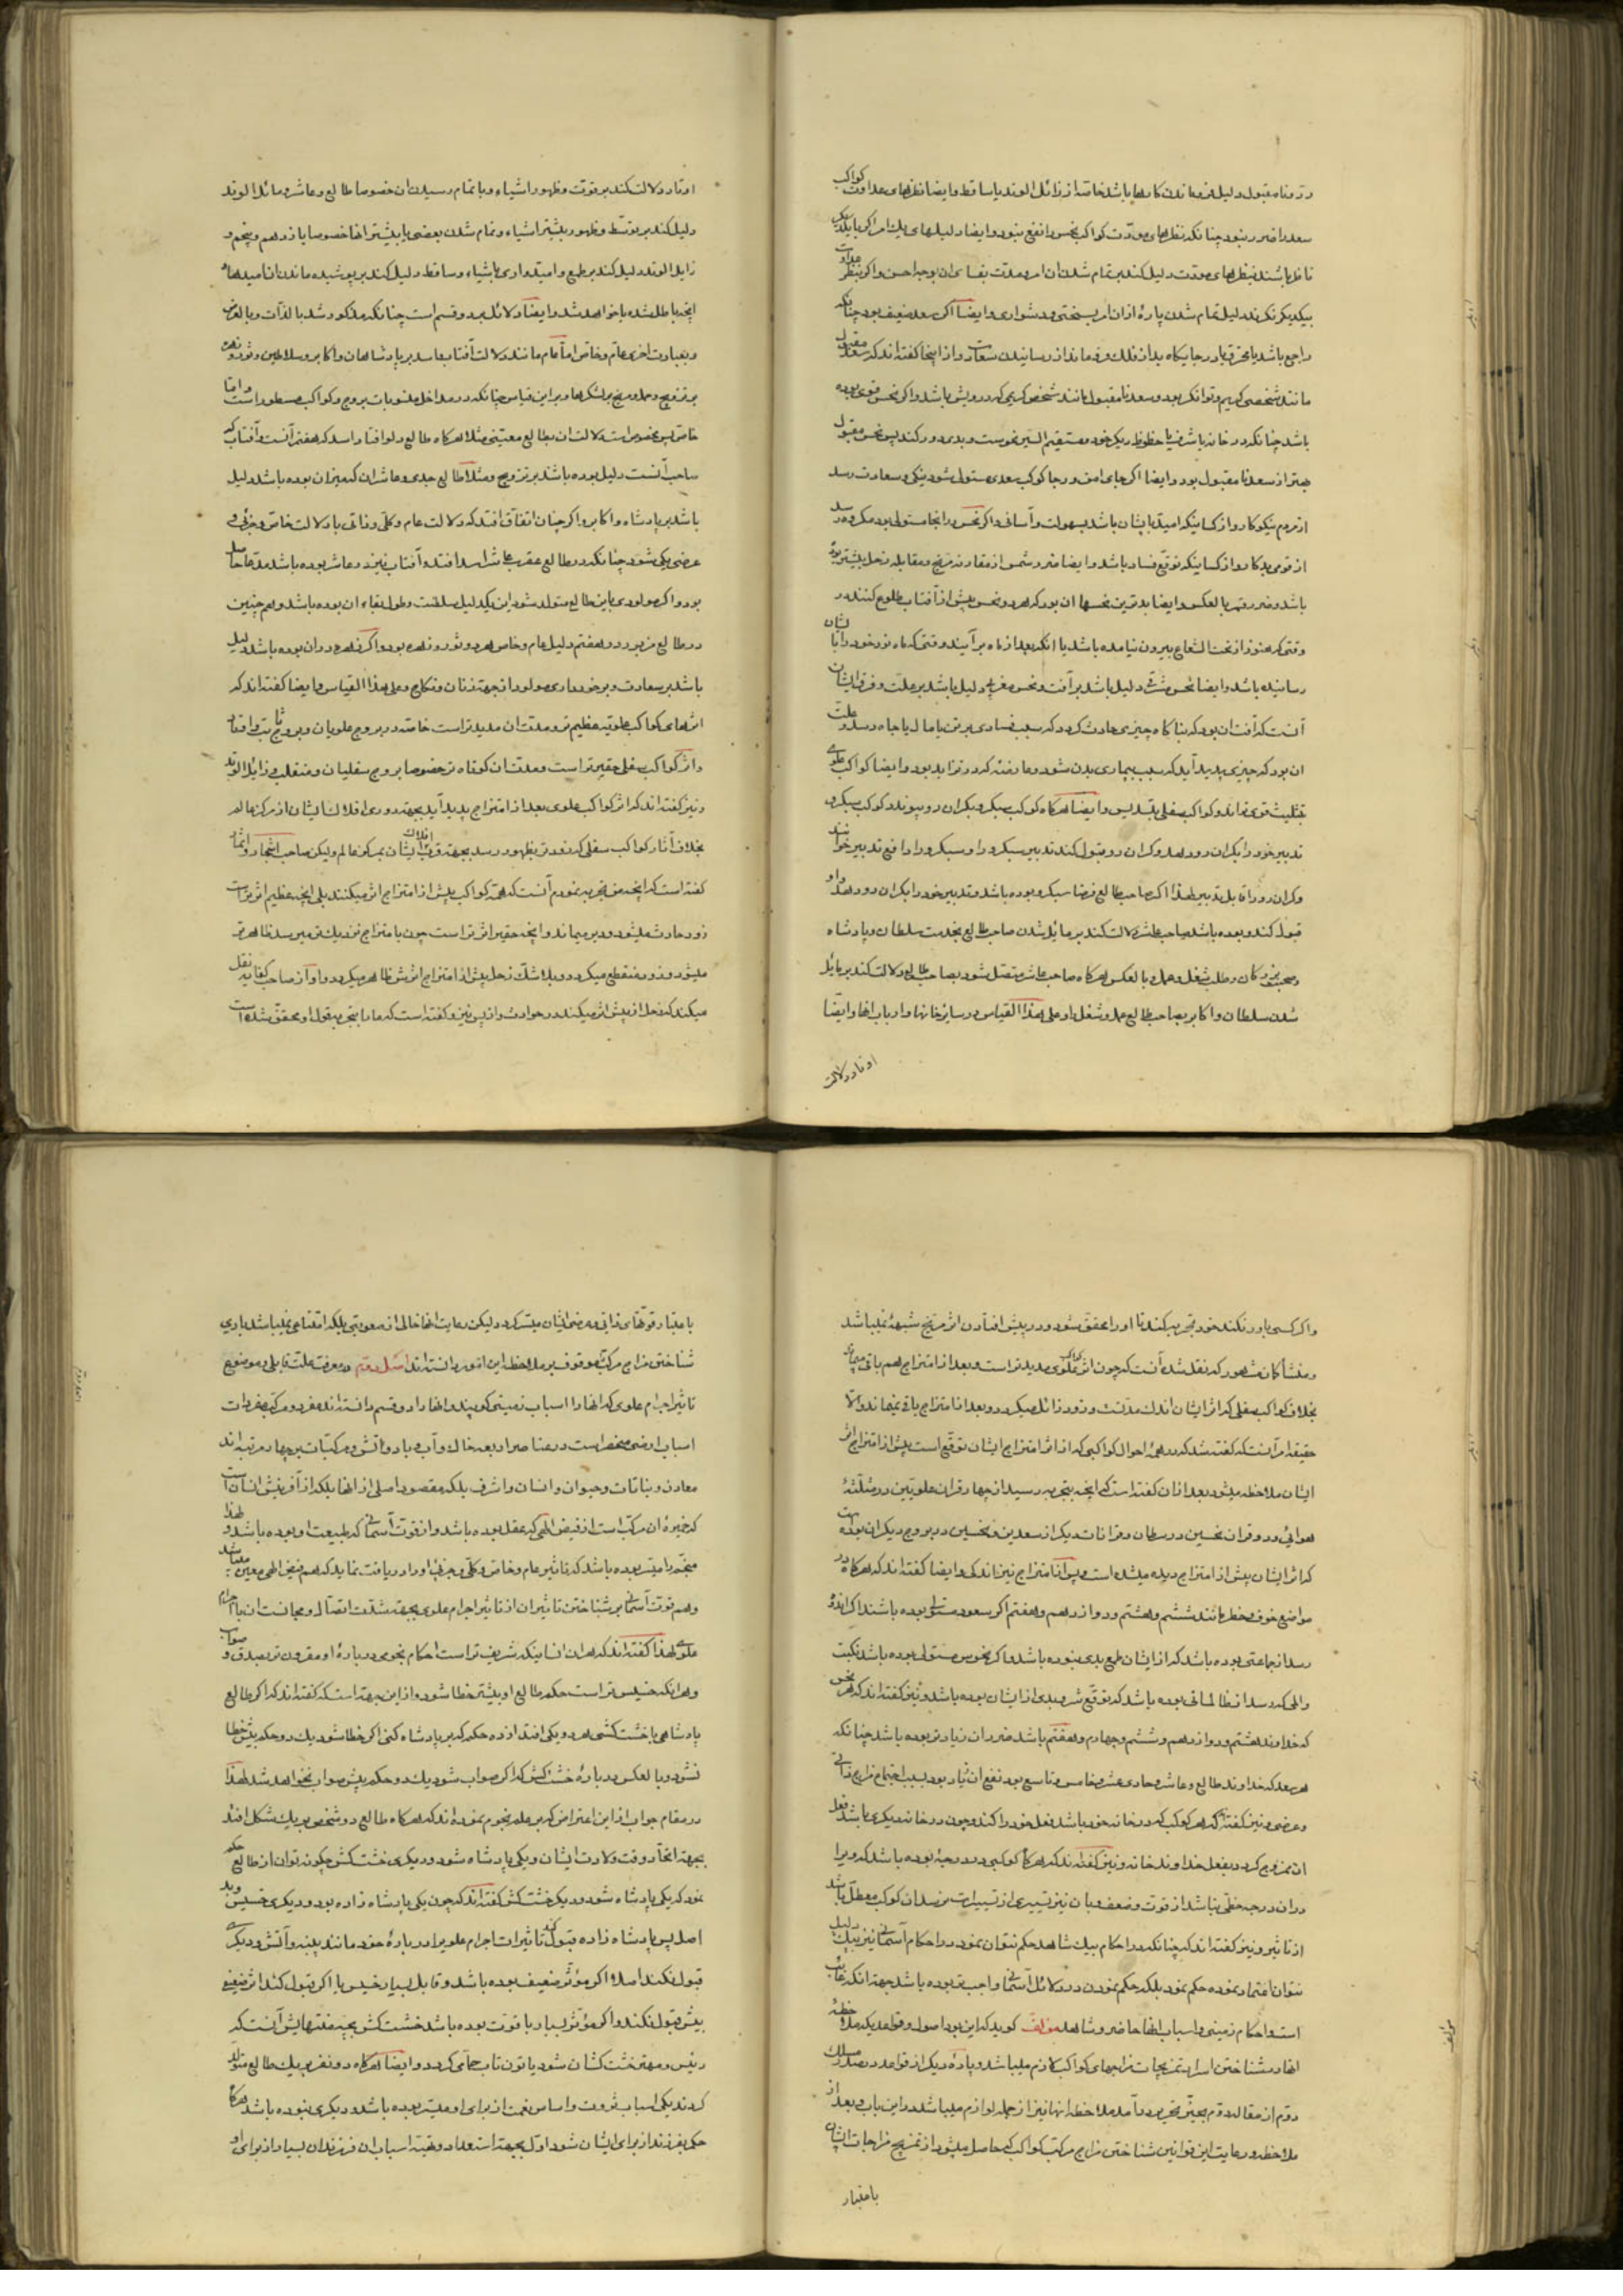 سعد را ضرر نبود چنانکه نظرهای مودّت کواکب نحس را نفع نبود و ایضا دلیلهای یك امر اکر با یکدیکر
ناظر باشند بنظرهای مودت دلیل کند بر تمام شدن ان امر و مدت بقای ان بوجه احسن و اکر بنظر عداوت
بیکدیکر نکرند دلیل تمام شدن پارهٔ از ان امر بسختی و دشواری و ایضا اکر سعد ضعیف بود چنانکه
مانند شخصی کریم و توانکر بود و سعد نا مقبول مانند شخص کریمی که درویش باشد و اکر نحس قوی بوده
باشد چنانکه در خانه یا شرف یا حظوظ دیکر خود مستقیم السیر نحوست و بدی دور کند پس نحس مقبول
بهتر از سعد نا مقبول بود و ایضا اکر جای امید و رجا کوکب سعدی مستولی شود نیکی و سعادت رسد
از مردم نیکوکار و از کسانیکه امید بایشان باشد بسهولت و آسانی و اکر نحس در انجا مستولی بود مکروه رسد
از قومی بدکار و از کسانیکه توقع فساد باشد و ایضا ضرر شمس از مقارنه مریخ و مقابله زحل بیشتر بود
باشد و ضرر قمر بالعکس و ایضا بدترین نحسها ان بود که هر دو نحس پیش از آفتاب طلوع کنند در
وقتی که هنوز از تحت الشعاع بیرون نیامده باشد یا انکه بعد از ماه بر آیند وقتی که ماه نور خود را بایشان
رسانیده باشد و ایضا نحس مشرقی دلیل باشد بر آفت و نحس مغربی دلیل باشد بر علت و فرق ایشان
آنست که آفت ان بود که بناکاه چیزی حادث کردد که سبب فسادی بر تن یا مال یا جاه رسد و علت
ان بود که چیزی پدید آید که سبب بیماری بدن شود و هر رفته که در تزاید بود و ایضا کواکب علوی
بتثلیث قوی تر اند و کواکب سفلی بتسدیس و ایضا هرکاه کوکب سبکرو بکران رو پیوندد کوکب سبکرو
تدبیر خود را بکران رو دهد و کران رو قبول کند تدبیر سبکرو را و سبکرو را دافع تدبیر خوانند
و کران رو را قابل تدبیر لهذا اکر صاحب طالع فرضا سبکرو بوده باشد و تدبیر خود را بکران رو دهد و او
قبول کند و بوده باشد صاحب عاشر دلالت کند بر مائل شدن صاحب طالع بخدمت سلطان و پادشاه
و صحبت بزرکان و طلب شغل و عمل و بالعکس هرکاه صاحب عاشر متصل شود بصاحب طالع دلالت کند بر مائل
شدن سلطان و اکابر بصاحب طالع عمل و شغل او و علی هذا القیاس در سایر خانها و ارباب انها و ایضا
اوتاد دلالت
اوتاد دلالت کند بر قوت و ظهور اشیاء و باتمام رسیدن ان خصوصا طالع و عاشر و مائل الوتد
دلیل کند بر توسّط و ظهور بیشتر اشیاء و تمام شدن بعضی یا بیشتر انها خصوصا یازدهم و پنجم و
زایل الوتد دلیل کند بر طمع و امیدواری باشیاء و ساقط دلیل کند بر پوشیده ماندن ان امیدها
انچه باطل شده یا خواهد شد و ایضا دلائل بر دو قسم است چنانکه مذکور شد بالذات و بالعرض
و بعبارت اخری عام و خاص اما عام مانند دلالت آفتاب و اسد بر پادشاهان و اکابر و سلاطین و ثور و زهره
بر تزویج و حمل و مریخ بر لشکرها و بر این قیاس چنانکه در مداخل منسوبات بروج و کواکب مسطور است و اما
خاص پس مخصوص است دلالت ان بطالع معیّنی مثلا هرکاه طالع دلو افتد و اسد که هفتم آنست و آفتاب که
صاحب آنست دلیل بوده باشند بر تزویج و مثلا طالع جدی و عاشر ان که میزان بوده باشد دلیل
باشد بر پادشاه و اکابر و اکر چنان اتفاق افتد که دلالت عام و کلی و ذاتی با دلالت خاص و جزئی و
عرضی یکی شود چنانکه در طالع عقرب عاشر اسد افتد و آفتاب نیز در عاشر بوده باشد مدعا حاصل
بود و اکر مولودی باین طالع متولد شود این یك دلیل سلطنت و طول بقاء ان بوده باشد و هم چنین
در طالع مزبور در هفتم دلیل عام و خاص هر دو ثور و زهره بود و اکر زهره در ان بوده باشد دلیل
باشد بر سعادت و برخورداری مولود از جهة زنان و نکاح و علی هذا القیاس و ایضا کفته اند که
اثرهای کواکب علویه عظیم تر و مدت ان مدیدتر است خاصه در بروج علویان و بروج ثابت و اوتاد
و اثر کواکب سفلی حقیرتر است و مدتشان کوتاه تر خصوصا بروج سفلیان و منقلب و زایل الوتد
و نیز کفته اند که اثر کواکب علوی بعد از امتزاج پدید آید بجهة دوری افلاك ایشان از مرکز عالم
بخلاف آثار کواکب سفلی که زودتر بظهور رسد بجهة قرب افلاك ایشان بمرکز عالم و لیکن صاحب اشجار و اثمار
کفته است که انچه من تجربه نمودم آنست که همه کواکب پیش از امتزاج اثر میکنند بلی انچه عظیم اثرتر است
زود حادث میشود و دیر میماند و انچه حقیر اثرتر است چون بامتزاج نزدیك تر میرسد ظاهرتر
میشود و زود منقطع میکردد و بلا شك زحل پیش از امتزاج اثرش ظاهر میکردد و او از صاحب کفایه نقل
میکند که زحل از پیش اثر میکند در حوادث و از پس نیز و کفته است که ما را بتجربه قول او محقق شده است
و اکر کسی باور نکند خود تجربه کند تا او را محقق شود و در پیش افتادن اثر مریخ شبهه نمیباشد
و منشأ کمان مشهور که نقل شد آنست که چون اثر کواکب علوی مدیدتر است و بعد از امتزاج هم باقی میماند
بخلاف کواکب سفلی که اثر ایشان اندك مدتست و زود زائل میکردد و بعد از امتزاج باقی نمیماند و الا
حقیقة امر آنست که کفته شد که در همهٔ احوال کواکبی که از اثر امتزاج ایشان توقع است پیش از امتزاج اثر
ایشان ملاحظه میشود بعد از ان کفته است که انچه بتجربه رسید از چهار قران علویین در مثلثهٔ
هوائی و دو قران نحسین در سرطان و قرانات دیکر از سعدین و نحسین در بروج دیکر ان بوده است
که اثر ایشان پیش از امتزاج دیده میشده است و پس از امتزاج نیز اندکی و ایضا کفته اند که هرکاه در
مواضع خوف و خطر مانند ششم و هشتم و دوازدهم و هفتم اکر سعود مستولی بوده باشند اکر اندوه
رسد از جماعتی بوده باشد که از ایشان طمع بدی نبوده باشد و اکر نحوس مستولی بوده باشد نکبت
و المی که رسد از ظالمانی بوده باشد که توقع شر و بدی از ایشان بوده باشد و نیز کفته اند که هر نحس
که خداوند هشتم و دوازدهم و ششم و چهارم و هفتم باشد ضرر ان زیادتر بوده باشد چنانکه
هر سعد که خداوند طالع و عاشر و حادی عشر و خامس و تاسع بود نفع ان زیاد بود بسبب اجتماع مزاج ذاتی
و عرضی و نیز کفته اند که هر کوکب که در خانه خود باشد فعل خود را کند و چون در خانه دیکری باشد فعل
ان ممزوج کردد بفعل خداوند خانه و نیز کفته اند که هرکاه کوکبی در درجهٔ بوده باشد که ویرا
در ان درجه حظی نباشد از قوت و ضعف
از تاثیر و نیز کفته اند که چنانکه در احکام بیك شاهد حکم نتوان نمود در احکام آسمانی نیز بیك دلیل
نتوان اعتماد نموده حکم نمود بلکه حکم نمودن در دلائل آسمانی واجب تر بوده باشد جهة انکه غائب
است و احکام زمینی و اسباب انها حاضر و شاهد مؤلف کوید که این بود اصول و قواعدیکه ملاحظهٔ
انها در شناختن اسرار تمزیجات مزاجهای کواکب لازم میباشد و پارهٔ دیکر از قواعد در صدر مسلك
دوم از مقاله دوم بحیّز تحریر در آمد ملاحظه انها نیز از جمله لوازم میباشد در این باب و بعد از
ملاحظه و رعایت این قوانین شناختن مزاج مرکب کواکب که حاصل میشود از تمزیج مزاجات ایشان
باعتبار
باعتبار قوتهای ذاتی و عرضی ایشان میسّر کردد لیکن رعایت انها خالی از صعوبتی بلکه امتناعی نمیباشد باری
شناختن مزاج مرکب موقوف بر ملاحظه این امور دانسته اند اصل دوم در معرفت علت قابلی و موضوع
تاثیر اجرام علوی که انها را اسباب زمینی کویند و انها را دو قسم دانسته اند مفرد و مرکب مفردات
اسباب ارضی منحصر است در عناصر اربعه خاك و آب و باد و آتش و مرکبات بر چهار مرتبه اند
معادن و نباتات و حیوان و انسان و اشرف بلکه مقصود اصلی از انها بلکه از آفرینش انسان است
که خمیرهٔ ان مرکب است از فیض الهی که عقل بوده باشد و از قوت آسمانی که طبیعت او بوده باشد و لهذا
منجّم را میسّر بوده باشد که تاثیر عام و خاص و کلی و جزئی او را دریافت نماید که هم فیض الهی معین میباشد
و هم قوت آسمانی بر شناختن تاثیر ان از تاثیر اجرام علوی بجهة شدّت اتصال و مجانست ان با اجرام
علوی لهذا کفته اند که هر ان انسانیکه شریف تر است احکام نجومی در بارهٔ او مقرون تر بصدق و صواب
و هر انکه خسیس تر است حکم طالع او بیشتر خطا شود و از این جهة است که کفته اند که اکر طالع
پادشاهی با خشت کشی هر دو یکی افتد از ده حکم که بر پادشاه کنی اکر خطا شود یك دو حکم بیش خطا
نشود و بالعکس در بارهٔ خشت کش که اکر صواب شود یك دو حکم بیش صواب نخواهد شد لهذا
در مقام جواب از این اعتراض که بر علم نجوم نموده اند که هرکاه طالع دو شخص بر یك شکل افتد
بجهة اتحاد وقت ولادت ایشان و یکی پادشاه شود و دیکری خشت کش چکونه توان از طالع حکم
نمود که یکی پادشاه شود و دیکری خشت کش کفته اند که چون یکی پادشاه زاده بود و دیکری خسیس و بد
اصل پس پادشاه زاده قبول کند تاثیرات اجرام علویرا در بارهٔ خود مانند پنبه و آتش و دیکری
قبول نکند اصلا اکر مؤثر ضعیف بوده باشد و قابل بسیار خسیس یا اکر قبول کند اثر ضعیفی
بیش قبول نکند و اکر مؤثر بسیار با قوت بوده باشد خشت کش بحد منتهایش آنست که
رئیس و مهتر خشت کشان شود یا تون تاب حمامی کردد و ایضا هرکاه دو نفر بر یك طالع متولد
کردند یکی اسباب ثروت و اساس نعمت از برای او میسّر بوده باشد و دیکری نبوده باشد هرکاه
حکم بفرزند از برای ایشان شود اول بجهة استعداد و تهیّه اسباب ان فرزندان بسیار از برای او